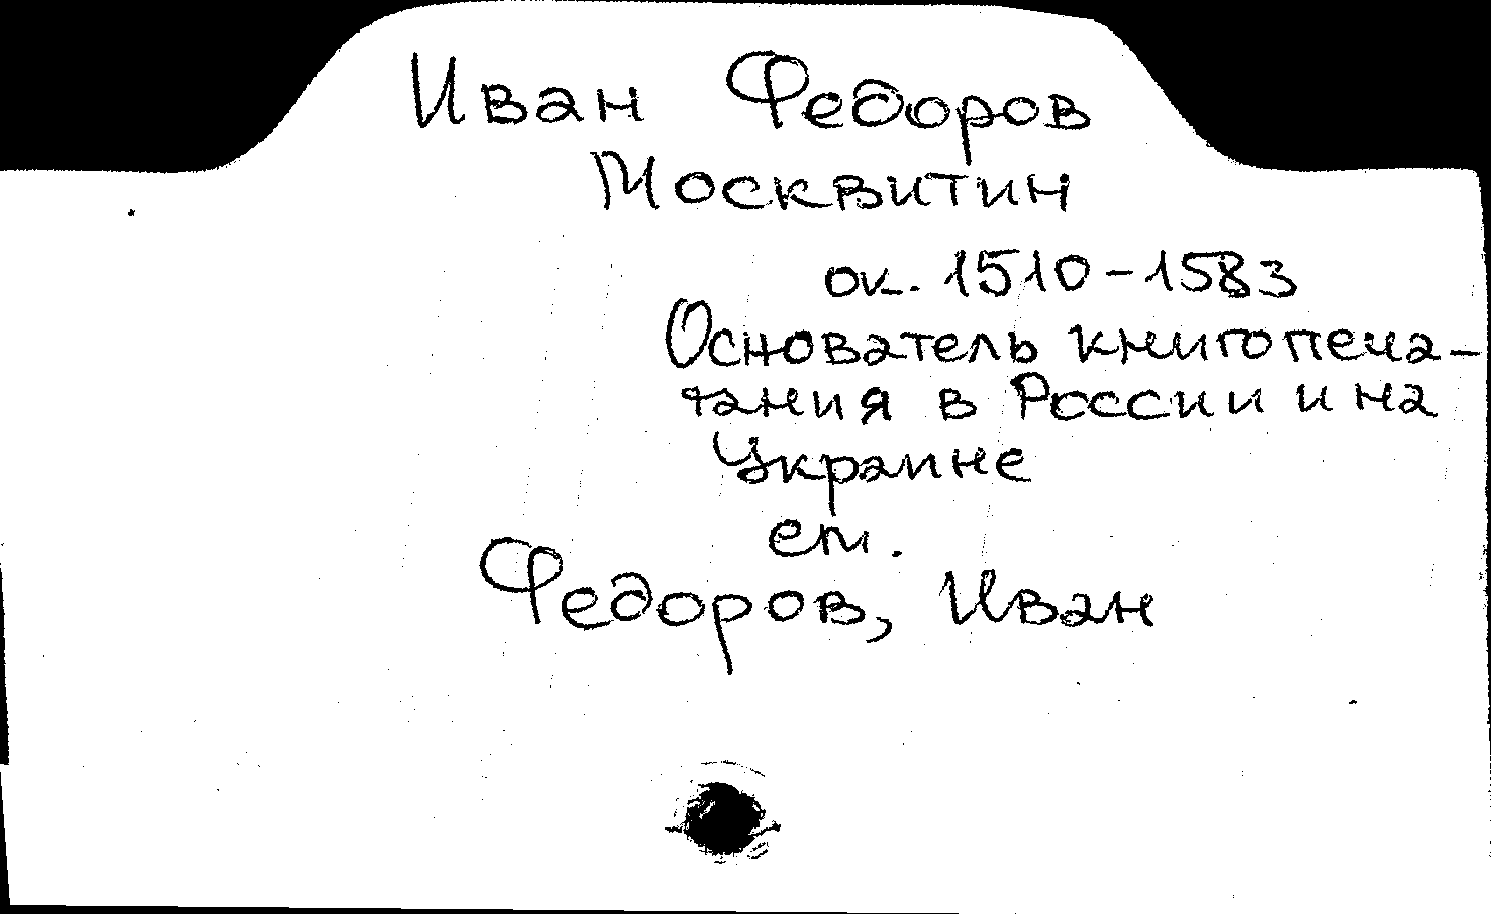 Иван Федоров
Москвитин
ок. 1510-1583
Основатель книгопеча-
тания в России и на
Украине
см.
Федоров, Иван